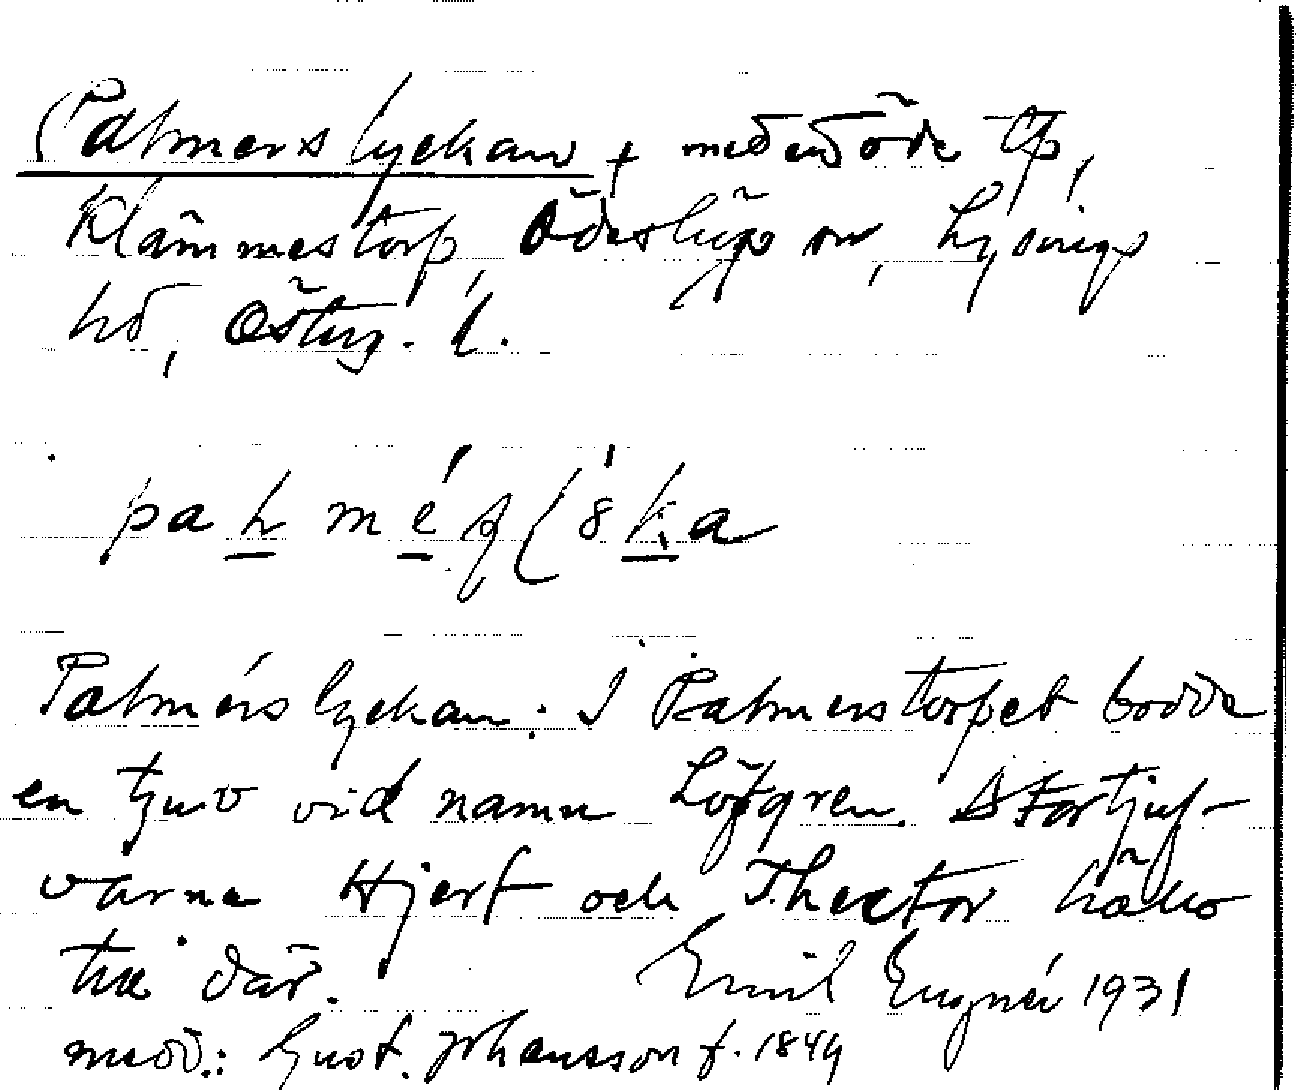 Palmerslyckan + med en öde tp,
Klämmestorp, Ödeshög sn, Lysings
hd, Östg. l.
Palmérslyckan. I Palmerstorpet bodde
en tjuv vid namn Löfgren. Stortjuf-
varne Hjert och Thector höllo
till där. Emil Eugnér 1931
medd.: Gust. Johansson f. 1849